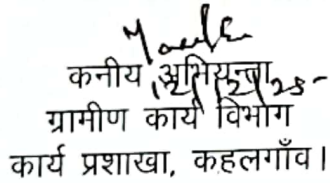 कनीय अभियन्ता
12/12/25
ग्रामीण कार्य विभाग
कार्य प्रशाखा, कहलगाँव।